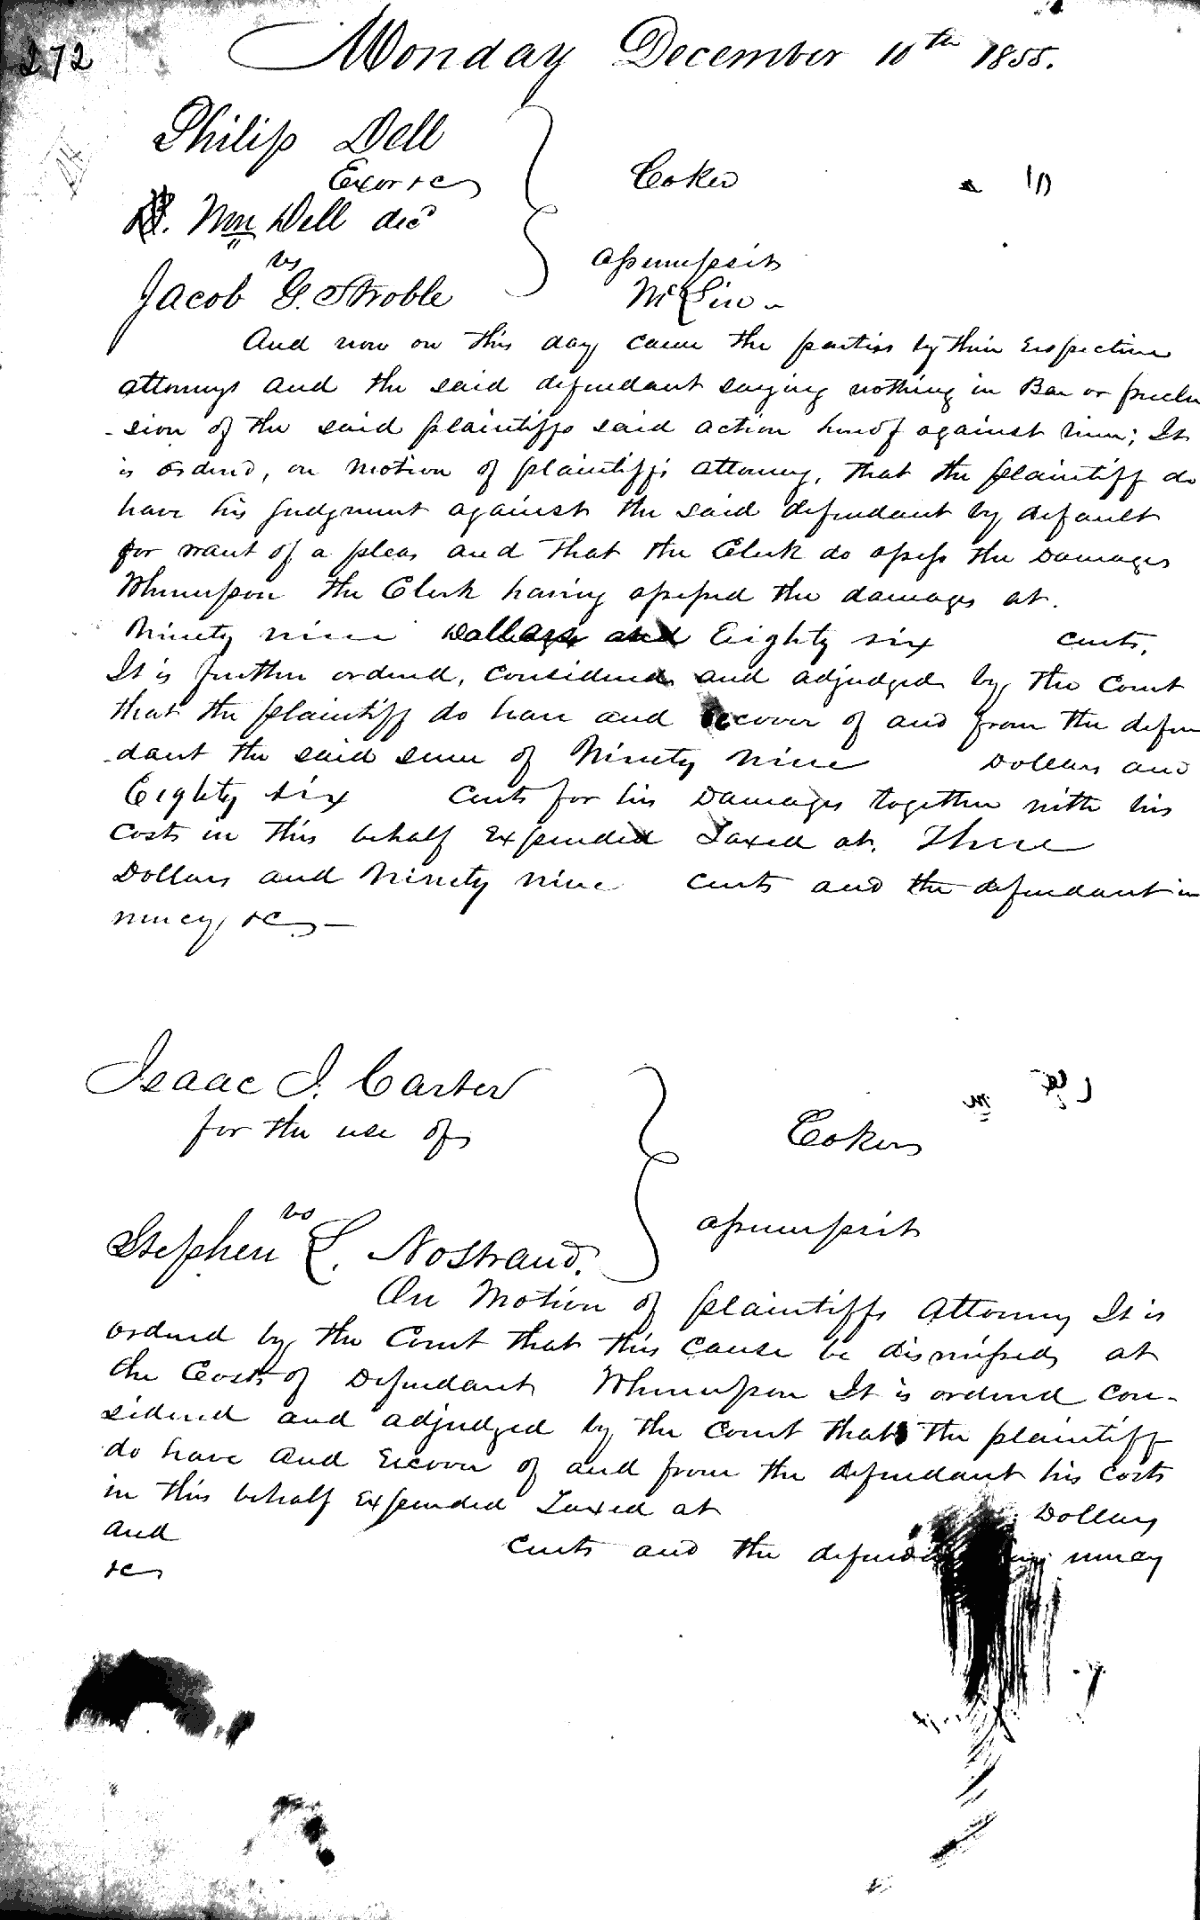 272
Monday December 10th 1855.
Philip Dell
Exor &c
Wm Dell decd
vs
Jacob G. Stroble
Coker
assumpsit
McLin
And now on this day came the parties by their respective
attorneys and the said defendant saying nothing in Bar or preclu
-sion of the said plaintiffs said action hereof against him; It
is ordered, on motion of plaintiff's attorney, that the plaintiff do
have his judgment against the said defendant by default
for want of a plea and that the Clerk do assess the Damages
Whereupon the Clerk having assessed the damages at.
Ninety nine Dollars and Eighty six cents,
It is further ordered, considered and adjudged by the Court
that the plaintiff do have and recover of and from the defen
-dant the said sum of Ninety nine Dollars and
Eighty six cents for his Damages together with his
costs in this behalf Expended Taxed at. Three
Dollars and Ninety nine cents and the defendant in
mercy, &c —
Isaac J. Carter
for the use of
vs
Stephen L. Nostrand.
Cokers
assumpsit
On Motion of plaintiffs Attorney It is
ordered by the Court that this cause be dismissed at
the Costs of Defendant Whereupon It is ordered con-
sidered and adjudged by the Court that the plaintiff
do have and recover of and from the defendant his costs
in this behalf Expended Taxed at Dollars
and cents and the defendant in mercy
&c